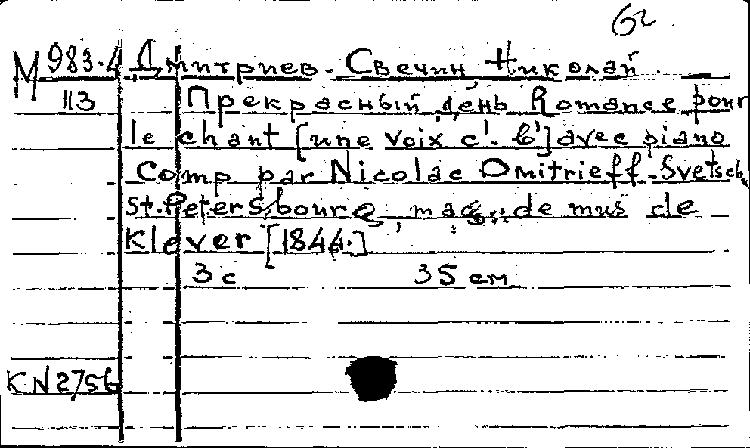 62
М 983-4 Дмитриев-Свечин, Николай
113 Прекрасный день. Romance pour
le chant [une voix c'. b'] avec piano
Comp par Nicolae Dmitrieff-Svetsch.
St.Petersbourg, mag. de mus de
Klever [1844.]
3 с 35 см
KN2756